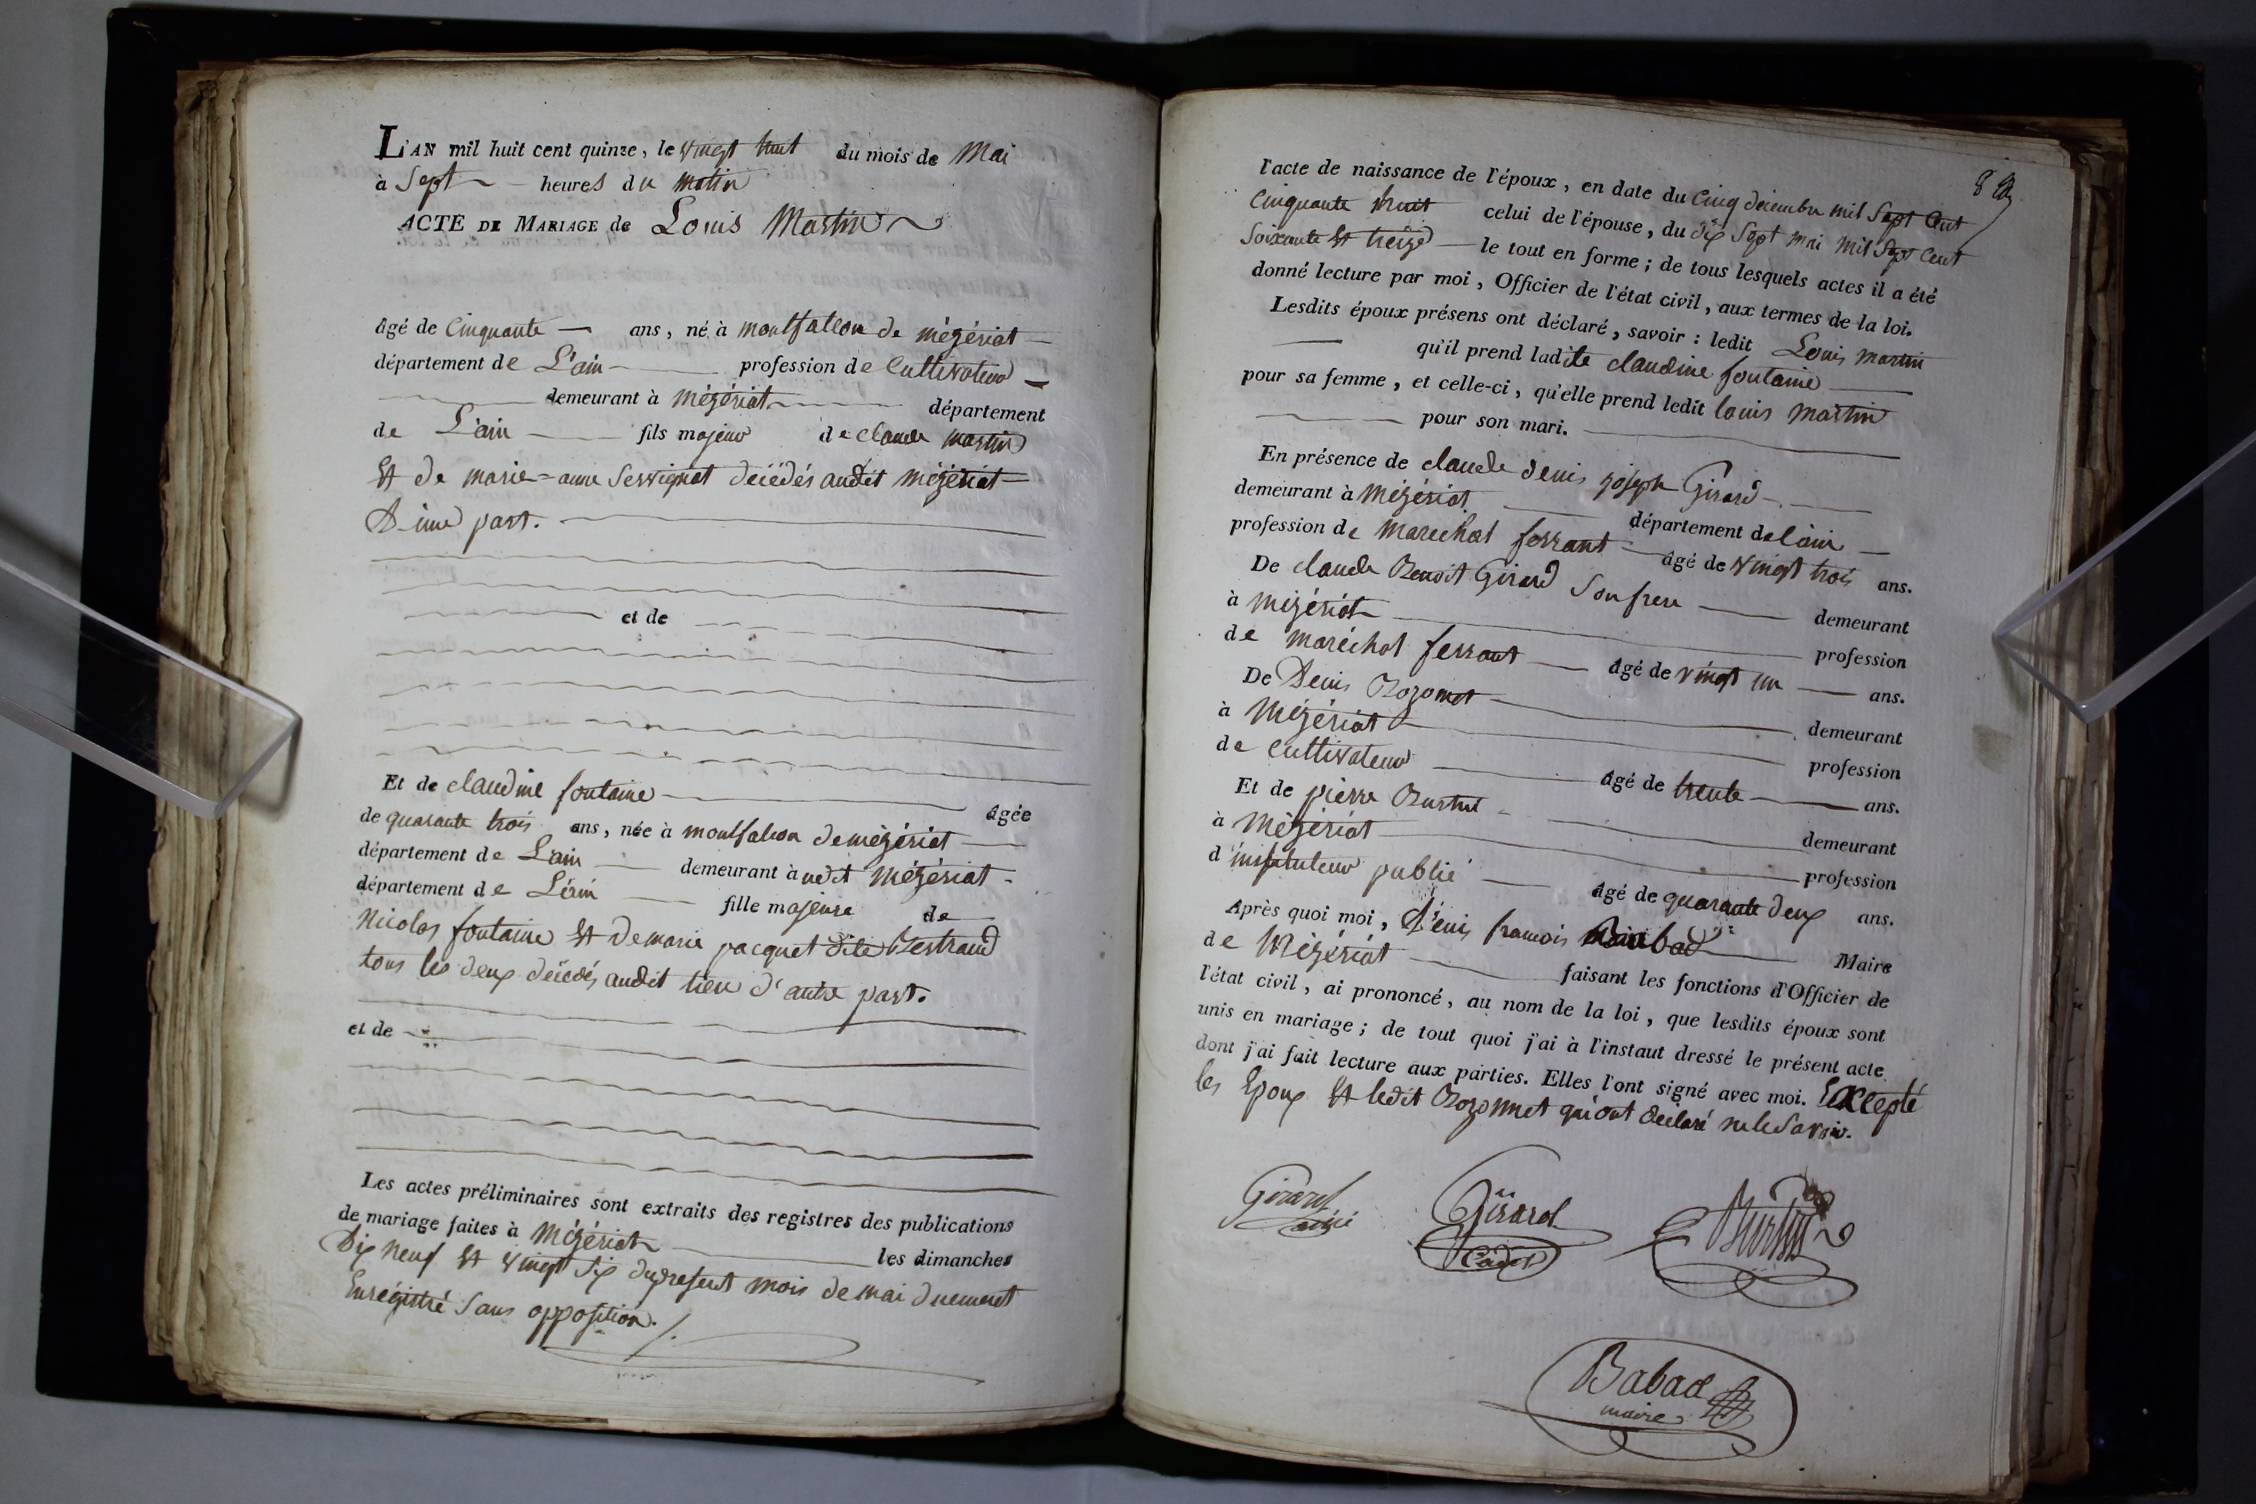 L'AN mil huit cent quinze, le vingt huit du mois de Mai
à Sept heures du matin
ACTE DE MARIAGE de Louis Martin
âgé de Cinquante ans, né à montfalcon de mézériat
département de L'ain profession de Cultivateur
demeurant à Mézériat département
de L'ain fils majeur de claude martin
Et de marie=anne Servignat décédés audit mézériat
D'une part.
et de
Et de claudine fontaine âgée
de quarante trois ans, née à montfalcon de mézériat
département de L'ain demeurant audit Mézériat
département de L'ain fille majeure de
Nicolas fontaine Et de marie pacquet dite Bertrand
tous les deux décédés audit lieu d'autre part.
et de
Les actes préliminaires sont extraits des registres des publications
de mariage faites à Mézériat les dimanches
Dix neuf Et vingt six du present mois de mai duement
Enrégistré Sans opposition.
8
l'acte de naissance de l'époux, en date du Cinq décembre mil Sept Cent
Cinquante huit celui de l'épouse, du dix Sept mai mil Sept Cent
Soixante Et treize le tout en forme; de tous lesquels actes il a été
donné lecture par moi, Officier de l'état civil, aux termes de la loi.
Lesdits époux présens ont déclaré, savoir: ledit Louis martin
qu'il prend ladite claudine fontaine
pour sa femme, et celle-ci, qu'elle prend ledit louis martin
pour son mari.
En présence de claude denis joseph Girard
demeurant à Mézériat département de l'ain
profession de Marechal ferrant âgé de vingt trois ans.
De claude Benoit Girard Son frere demeurant
à Mézériat profession
de maréchal ferrant âgé de vingt un ans.
De Denis Bozonnet demeurant
à Mézériat profession
de Cultivateur âgé de trente ans.
Et de pierre demeurant
à Mézériat profession
d'instituteur public âgé de quarante deux ans.
Après quoi moi, Denis francois Babad Maire
de Mézériat faisant les fonctions d'Officier de
l'état civil, ai prononcé, au nom de la loi, que lesdits époux sont
unis en mariage; de tout quoi j'ai à l'instant dressé le présent acte
dont j'ai fait lecture aux parties. Elles l'ont signé avec moi. Excepté
les Epoux Et ledit Bozonnet qui ont déclaré ne le Savoir.
Girard Girard
ainé Cadet
Babad
maire